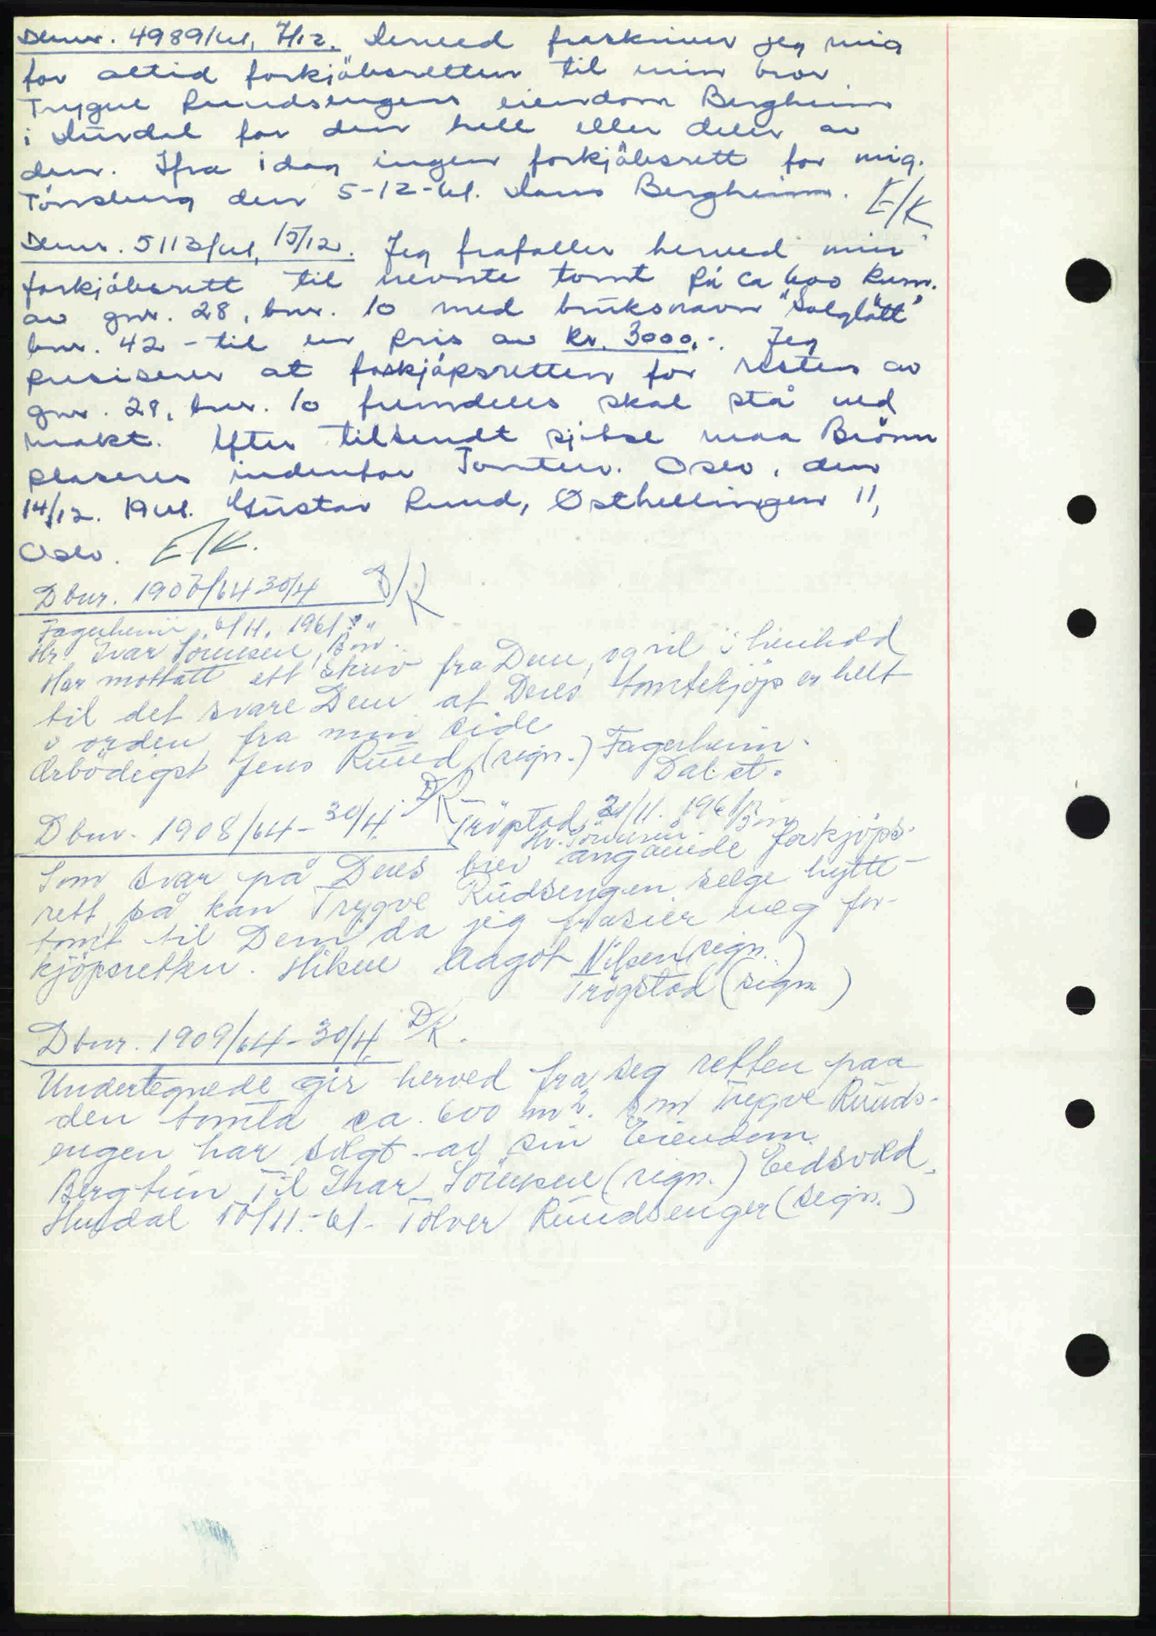 Dbnr. 4989/61, 7/12. Herved fraskriver jeg mig
for altid forkjöbsretten til min bror
Trygve Ruudsengens eiendom Bergheim
i Hurdal for den hele eller deler av
den. Ifra idag ingen forkjöbsrett for mig.
Tönsberg den 5-12-61. Hans Bergheim. E/K
Dbnr. 5113/61, 15/12. Jeg frafaller herved min
forkjöbsrett til nevnte tomt på ca 600 kvm.
av gnr. 28, bnr. 10 med bruksnavn "Solglött"
bnr. 42 - til en pris av kr. 3000,-. Jeg
presiserer at forkjöpsretten for resten av
gnr. 28, bnr. 10 fremdeles skal stå ved
makt. Efter tilsendt sjitse maa Brönn
plaseres indenfor Tomten. Oslo, den
14/12. 1961. Gustav Ruud, Østhellingen 11,
Oslo. E/K.
Dbnr. 1907/64 30/4 D/K
Fagerheim, 6/11. 1961
Hr. Ivar Sörensen, Bön.
Har mottatt ett skriv fra Dem, og vil i henhold
til det svare Dem at Deres tomtekjöp er helt
i orden fra min side
Ærbödigst Jens Ruud (sign.) Fagerheim.
Dal st.
Dbnr. 1908/64 - 30/4. D/K Trögstad, 21/11. 1961
Hr. Sörensen. Bön
Som svar på Deres brev angående forkjöps-
rett, så kan Trygve Rudsengen selge hytte-
tomt til Dem da jeg frasier meg for-
kjöpsretten. Hilsen Aagot Nilsen (sign.)
Trögstad (sign)
Dbnr. 1909/64 - 30/4. D/K.
Undertegnede gir herved fra seg retten paa
den tomta ca. 600 m². som Trygve Ruuds-
engen har solgt av sin Eiendom
Bergheim Til Ihar Sörensen (sign.) Eidsvold.
Hurdal 10/11.-61- Tolver Ruudsengen (sign.)